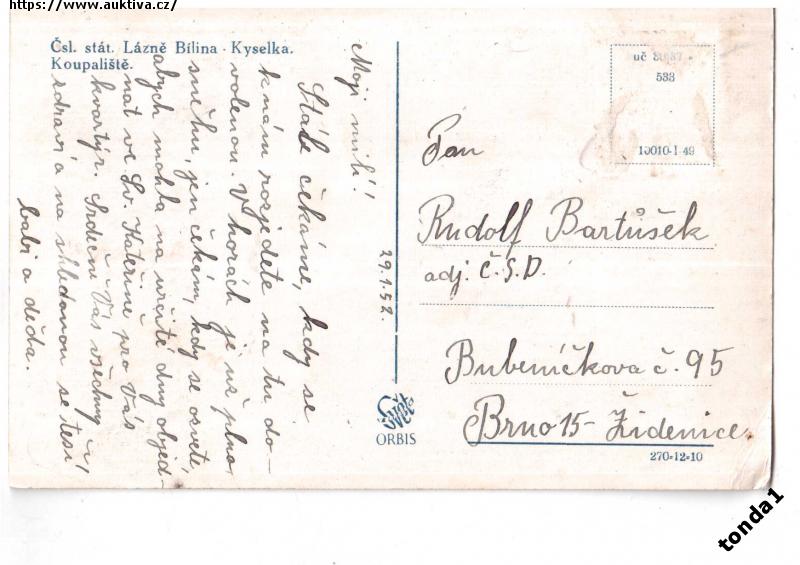 https://www.auktiva.cz/
Čsl. stát. Lázně Bílina - Kyselka.
Koupaliště.
Moji milí!
Stále čekáme, kdy se
k nám rozjedete na tu do-
volenou. V horách je už plno
sněhu, jen čekám, kdy se osvět,
abych mohla na určité dny objed-
nat ve Sv. Kateřině pro Vás
kvartýr. Srdeční Vás všechny
zdraví a na shledanou se těší
babi a děda.
29.1.52.
Svět
ORBIS
uč
533
10010-1-49
Pan
Rudolf Bartůšek
adj. Č.S.D.
Bubeníčkova č. 95
Brno 15 - Židenice
270-12-10
tonda1